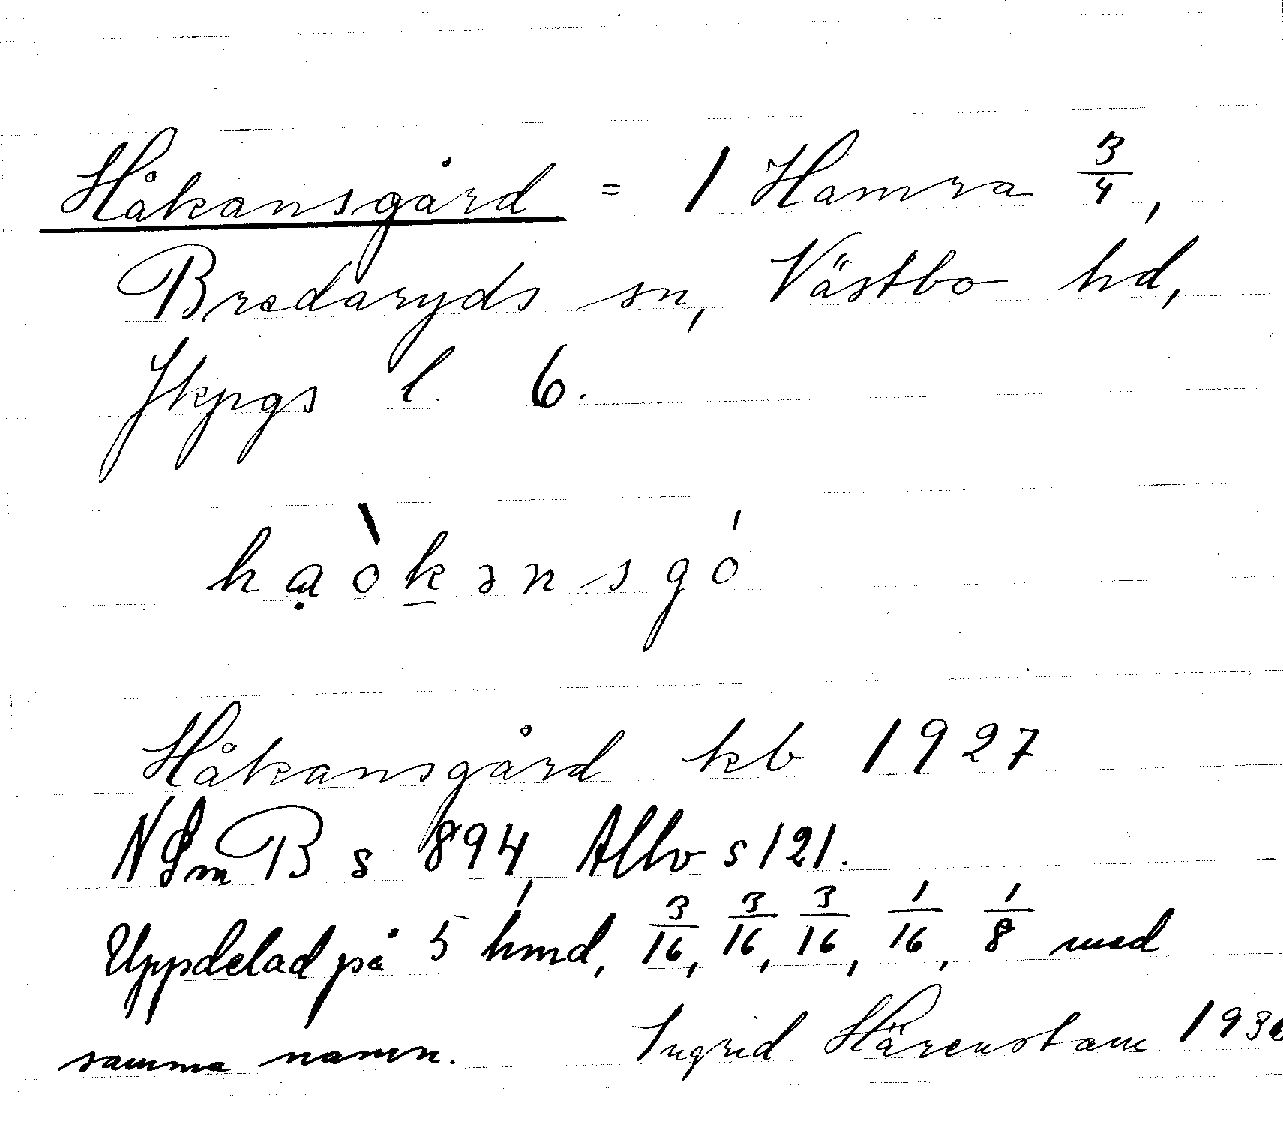 Håkansgård = 1 Hamra 3/4,
Bredaryds sn, Västbo hd,
Jkpgs l. 6.
hạòḵənsgó
Håkansgård kb 1927
NSmB s 894, Allbo s 121.
Uppdelad på 5 hmd, 3/16, 3/16, 3/16, 1/16, 1/8 med
samma namn. Ingrid Härenstam 1936